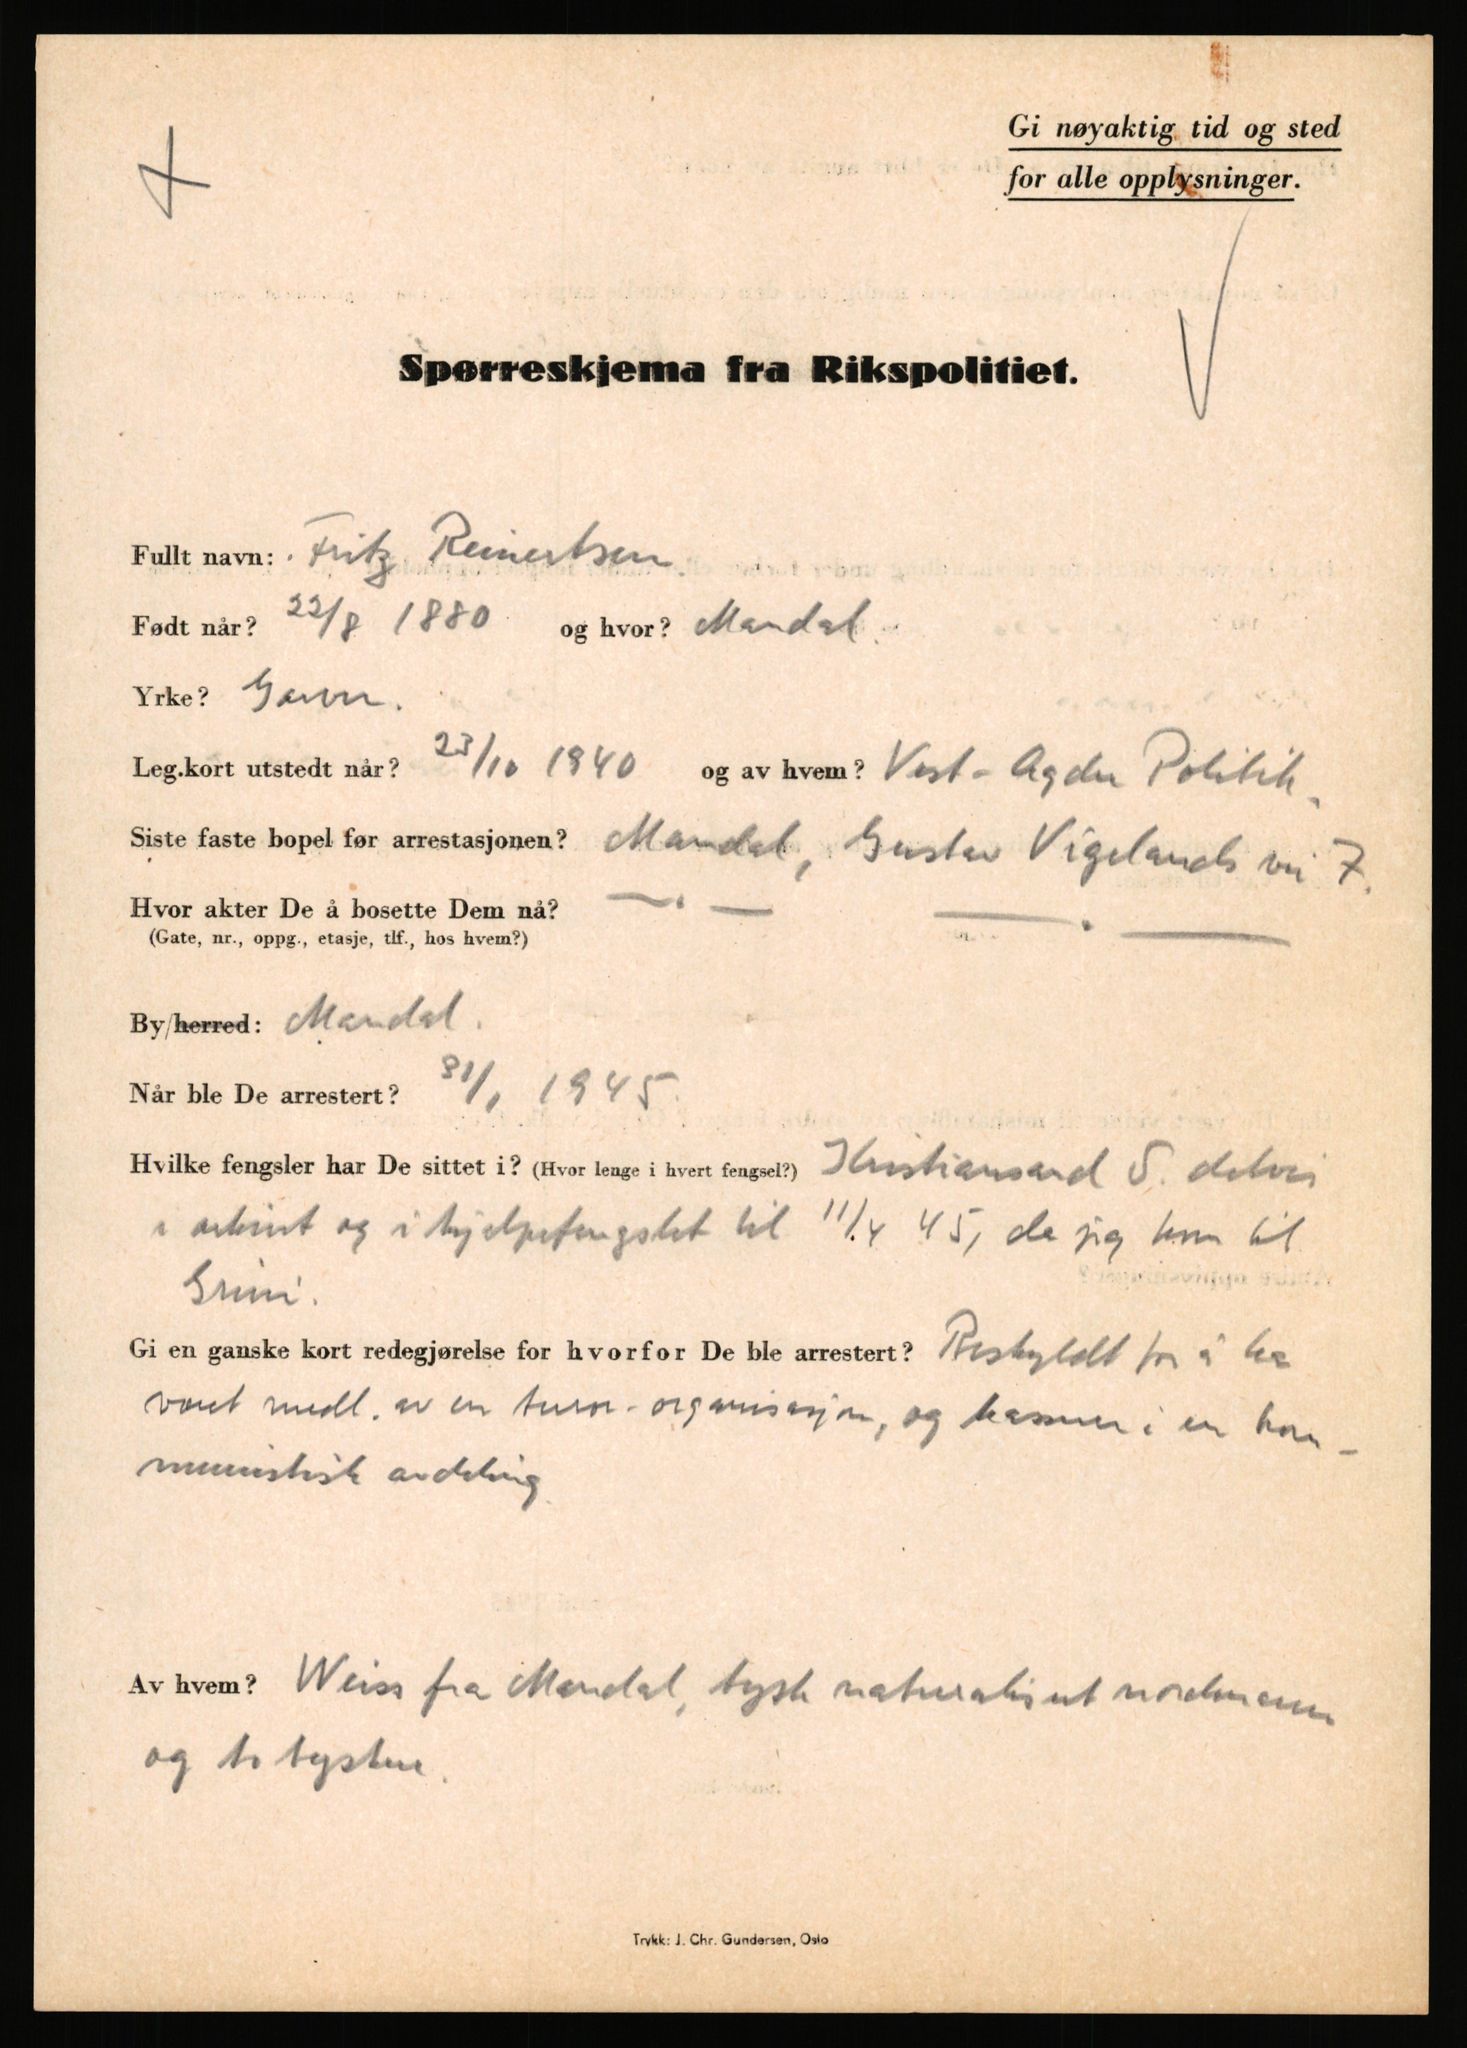 Gi nøyaktig tid og sted
for alle opplysninger.
Spørreskjema fra Rikspolitiet.
Fullt navn: Fritz Reinertsen
Født når? 22/8 1880 og hvor? Mandal.
Yrke? Garver.
Leg.kort utstedt når? 23/10 1940 og av hvem? Vest-Agder Politik.
Siste faste bopel før arrestasjonen? Mandal, Gustav Vigelands vei 7.
Hvor akter De å bosette Dem nå? —〃— —〃—
(Gate, nr., oppg., etasje, tlf., hos hvem?)
By/herred: Mandal.
Når ble De arrestert? 31/1 1945.
Hvilke fengsler har De sittet i? (Hvor lenge i hvert fengsel?) Kristiansand S. delvis
i arkivet og i hjelpefengslet til 11/4 45, da jeg kom til
Grini.
Gi en ganske kort redegjørelse for hvorfor De ble arrestert? Beskyldt for å ha
vært medl. av en terror-organisasjon, og kasserer i en kom-
munistisk avdeling.
Av hvem? Weiss fra Mandal, tysk naturalisert nordmann
og to tyskere.
Trykk: J. Chr. Gundersen, Oslo